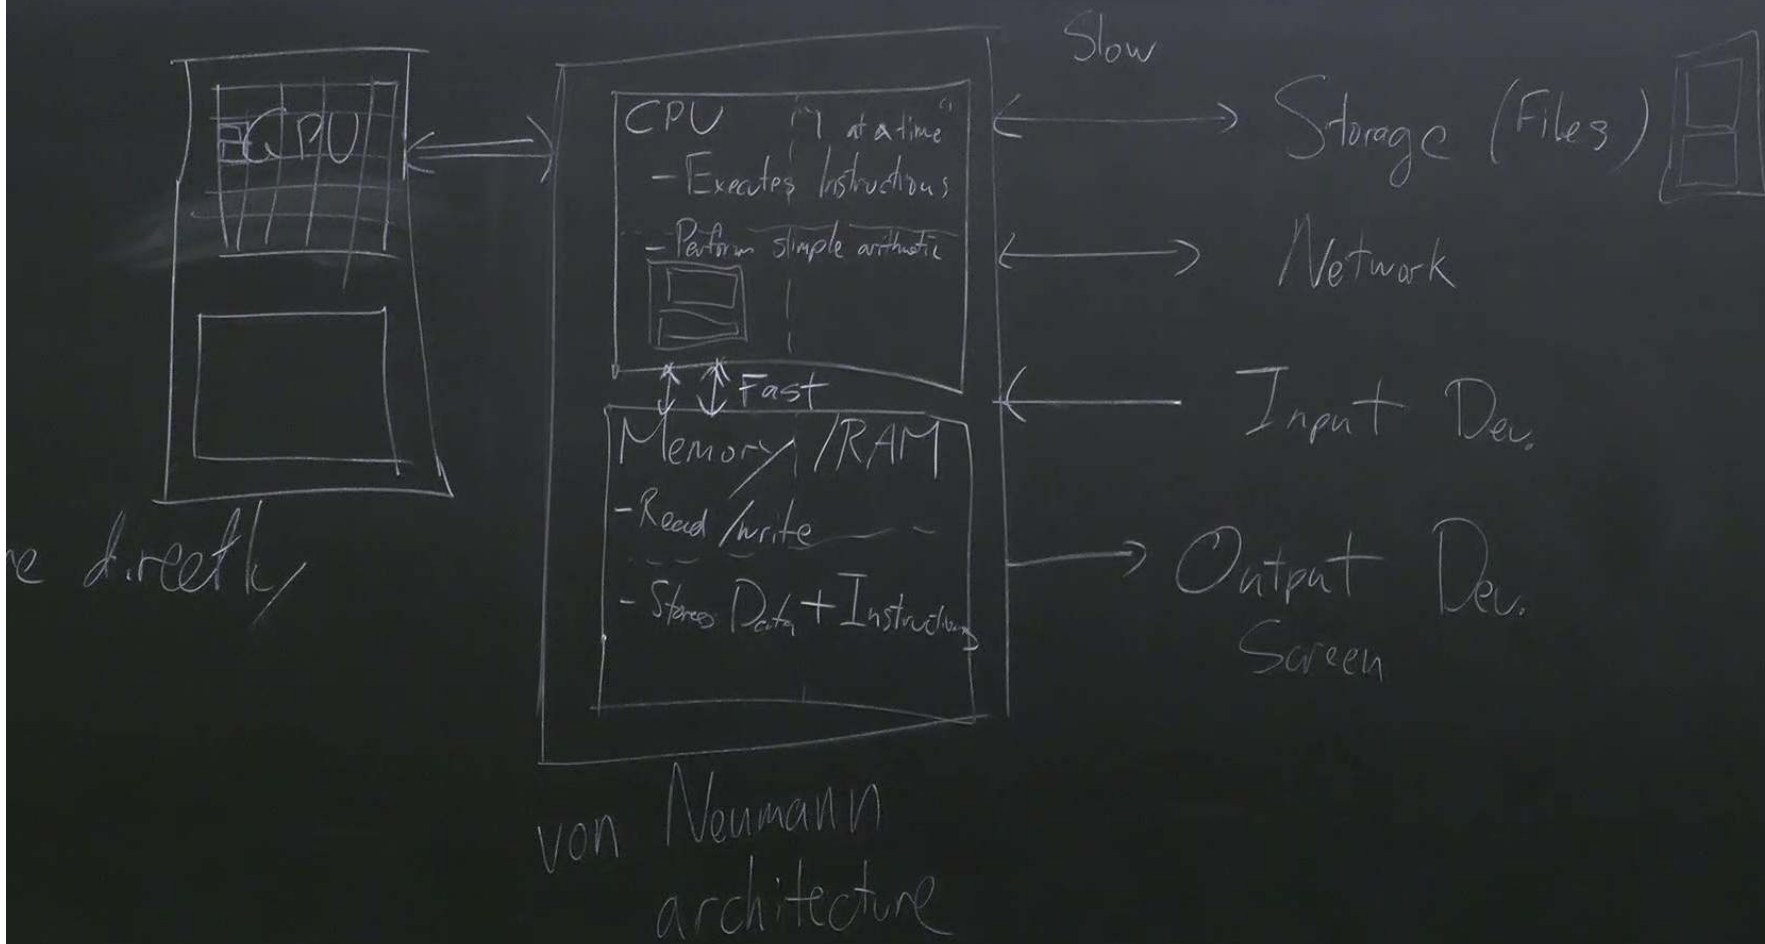 CPU
e directly
CPU "1 at a time"
- Executes Instructions
- Perform simple arithmetic
Fast
Memory /RAM
- Read/write
- Stores Data + Instructions
von Neumann
architecture
Slow
Storage (Files)
Network
Input Dev.
Output Dev.
Screen